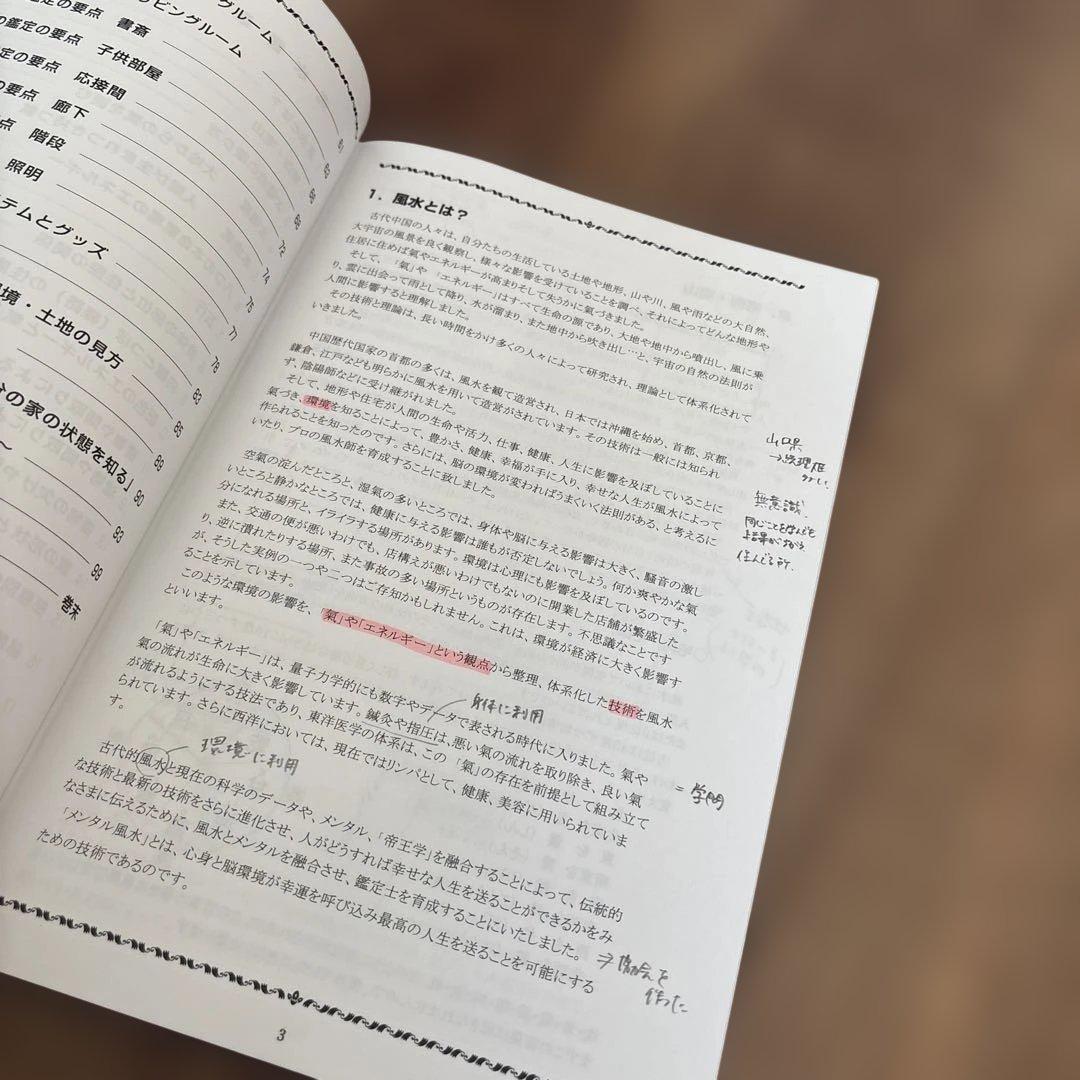 グルーム
リビングルーム
鑑定の要点 書斎
の鑑定の要点 子供部屋
定の要点 応接間
の要点 廊下
点 階段
照明
テムとグッズ
環境・土地の見方
分の家の状態を知る」 90
～
61
63
66
68
72
74
75
77
78
83
85
89
93
99
巻末
1. 風水とは？
古代中国の人々は、自分たちの生活している土地や地形、山や川、風や雨などの大自然、
大宇宙の風景を良く観察し、様々な影響を受けていることを調べ、それによってどんな地形や
住居に住めば氣やエネルギーが高まりそして失うかに氣づきました。
そして、「氣」や「エネルギー」はすべて生命の源であり、大地や地中から噴出し、風に乗
り、雲に出会って雨として降り、水が溜まり、また地中から吹き出し…と、宇宙の自然の法則が
人間に影響すると理解しました。
その技術と理論は、長い時間をかけ多くの人々によって研究され、理論として体系化されて
いきました。
中国歴代国家の首都の多くは、風水を観て造営され、日本では沖縄を始め、首都、京都、
鎌倉、江戸なども明らかに風水を用いて造営がされています。その技術は一般には知られ
ず、陰陽師などに受け継がれました。
そして、地形や住宅が人間の生命や活力、仕事、健康、人生に影響を及ぼしていることに
氣づき、環境を知ることによって、豊かさ、健康、幸福が手に入り、幸せな人生が風水によって
作られることを知ったのです。さらには、脳の環境が変わればうまくいく法則がある、と考えるに
いたり、プロの風水師を育成することに致しました。
空氣の淀んだところと、湿氣の多いところでは、身体や脳に与える影響は大きく、騒音の激し
いところと静かなところでは、健康に与える影響は誰もが否定しないでしょう。何か爽やかな氣
分になれる場所と、イライラする場所があります。環境は心理にも影響を及ぼしているのです。
また、交通の便が悪いわけでも、店構えが悪いわけでもないのに開業した店舗が繁盛した
り、逆に潰れたりする場所、また事故の多い場所というものが存在します。不思議なことです
が、そうした実例の一つや二つはご存知かもしれません。これは、環境が経済に大きく影響す
ることを示しています。
このような環境の影響を、「氣」や「エネルギー」という観点から整理、体系化した技術を風水
といいます。
「氣」や「エネルギー」は、量子力学的にも数字やデータで表される時代に入りました。氣や
氣の流れが生命に大きく影響しています。鍼灸や指圧は、悪い氣の流れを取り除き、良い氣
が流れるようにする技法であり、東洋医学の体系は、この「氣」の存在を前提として組み立て
られています。さらに西洋においては、現在ではリンパとして、健康、美容に用いられていま
す。
古代的風水と現在の科学のデータや、メンタル、「帝王学」を融合することによって、伝統的
な技術と最新の技術をさらに進化させ、人がどうすれば幸せな人生を送ることができるかをみ
なさまに伝えるために、風水とメンタルを融合させ、鑑定士を育成することにいたしました。
「メンタル風水」とは、心身と脳環境が幸運を呼び込み最高の人生を送ることを可能にする
ための技術であるのです。
山口県
無意識
同じことを学んでも
結果がちがう
住んでる所
身体に利用
環境に利用
＝学問
→協会を
作った
3